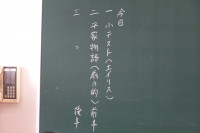 今日
一 小テスト(エイリス)
二 平家物語(扇の的) 前半
三 〃 後半